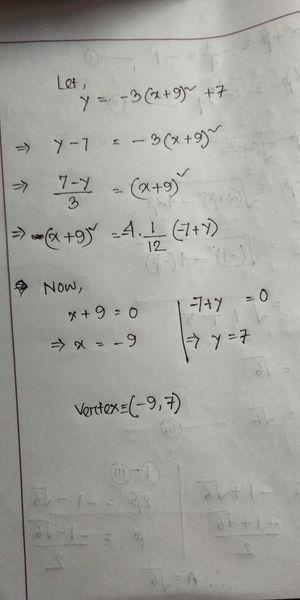 Let,
y = -3(x+9)² +7
⇒ y-7 = -3(x+9)²
⇒ (7-y)/3 = (x+9)²
⇒ -(x+9)² = 4·1/12 (-7+y)
⇒ Now,
x+9 = 0 | -7+y = 0
⇒ x = -9 | ⇒ y = 7
vertex≡(-9,7)